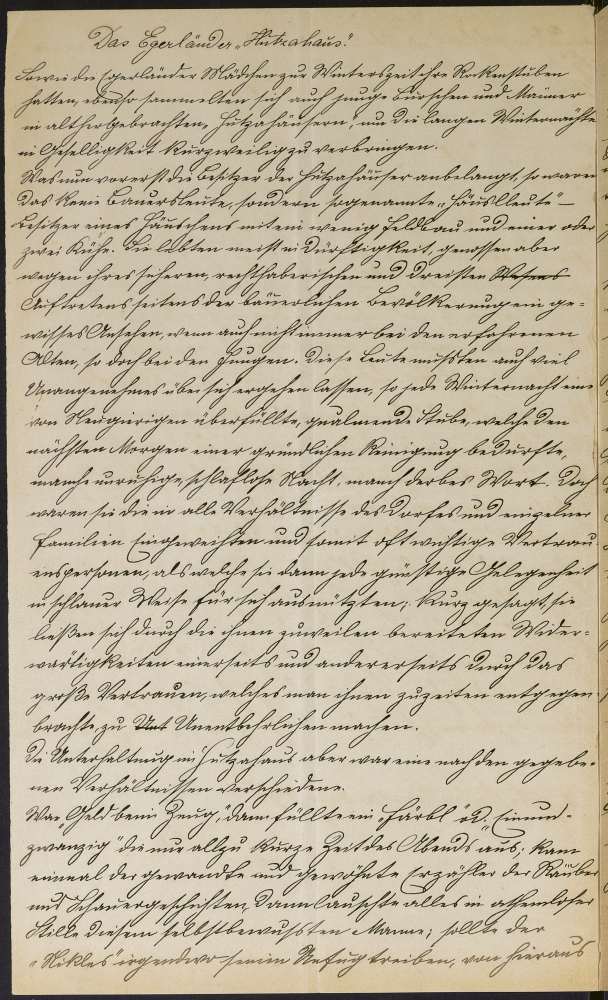 Das Egerländer „Hutzahaus“.
Sowie die Egerländer Mädchen zur Winterszeit ihre Rockenstuben
hatten, ebenso sammelten sich auch junge Burschen und Männer
in althergebrachten „Hutzahäusern“, um die langen Winternächte
in Geselligkeit kurzweilig zu verbringen.
Was nun vorerst die Besitzer der Hutzahäuser anbelangt, so waren
das keine Bauersleute, sondern sogenannte „Häuslleute“ –
Besitzer eines Häuschens mit ein wenig Feldbau und einer oder
zwei Kühe. Sie lebten meist in Dürftigkeit, genossen aber
wegen ihres sicheren, rechthaberischen und dreisten Wesens
Auftretens seitens der bäuerlichen Bevölkerung ein ge-
wisses Ansehen, wenn auch nicht immer bei den erfahrenen
Alten, so doch bei den Jungen. Diese Leute mußten auch viel
Unangenehmes über sich ergehen lassen, so jede Winternacht eine
von Neugierigen überfüllte, qualmende Stube, welche den
nächsten Morgen einer gründlichen Reinigung bedurfte,
manche unruhige, schlaflose Nacht, manch derbes Wort. Doch
waren sie die in alle Verhältnisse des Dorfes und einzelner
Familien Eingeweihten und somit oft wichtige Vertrau-
enspersonen, als welche sie dann jede günstige Gelegenheit
in schlauer Weise für sich ausnützten; kurz gesagt, sie
ließen sich durch die ihnen zuweilen bereiteten Wider-
wärtigkeiten einerseits und andererseits durch das
große Vertrauen, welches man ihnen zuzeiten entgegen-
brachte, zu Unt Unentbehrlichen machen.
Die Unterhaltung im Hutzahaus aber war eine nach den gegebe-
nen Verhältnissen verschiedene.
War „Geld beim Zeug“, dann füllte ein „Färbl“ od. „Einund-
zwanzig“ die nur allzu kurze Zeit des Abends aus; kam
einmal der gewandte und gewohnte Erzähler der Räuber
und Schauergeschichten, dann lauschte alles in athemloser
Stille diesem selbstbewussten Manne; sollte der
„Nikles“ irgendwo seinen Unfug treiben, von hieraus